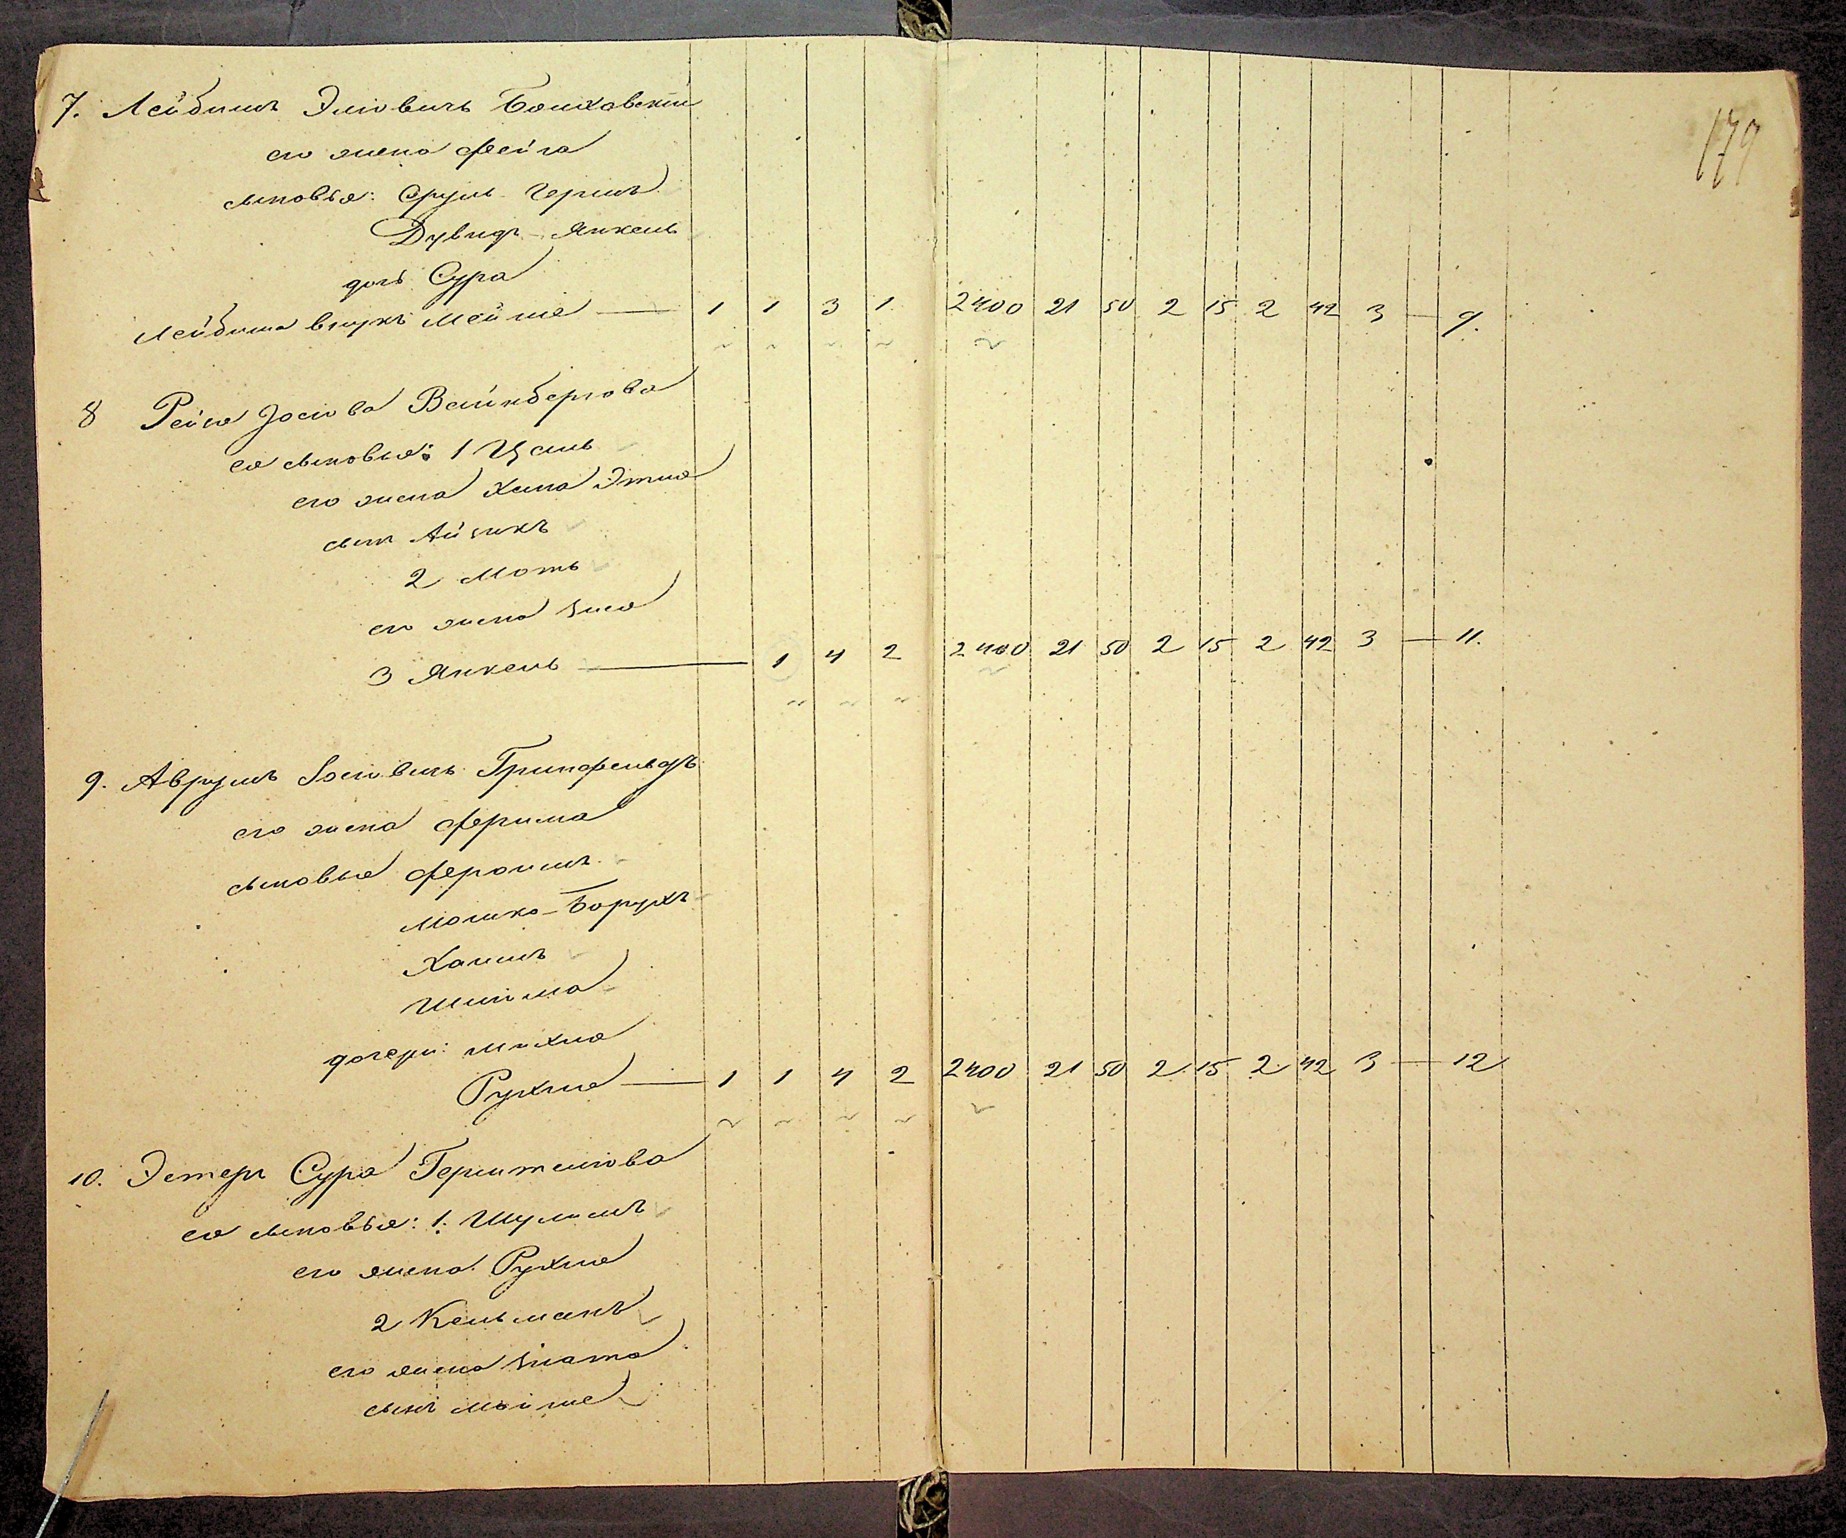 179
7. Лейбишъ ЭліовичъБолиховскій
его жена Фейга
сыновья: Сруль Гершъ
Дувидъ-Янкель
дочь Сура
Лейбиша внукъ Мейше — 1 1 3 1 2400 21 50 2 15 2 42 3 — 9.
8 Рейза Іосіова Вейнбергова
ея сыновья: 1 Цаль
его жена Хана Этля
сын Айзикъ
2 Моть
его жена Зися
3 Янкель — 1 4 2 2400 21 50 2 15 2 42 3 — 11.
9. Аврумъ Іосіовичъ Гринфельдъ
его жена Фрима
сыновья Фроимъ
Мошко-Борухъ
Хаимъ
Шлиома
дочери: Михля
Рухля — 1 1 4 2 2400 21 50 2 15 2 42 3 — 12
10. Эстеръ Сура Герштейнова
ея сыновья: 1. Шулимъ
его жена Рухля
2 Кельманъ
его жена Злата
сынъ Мойше